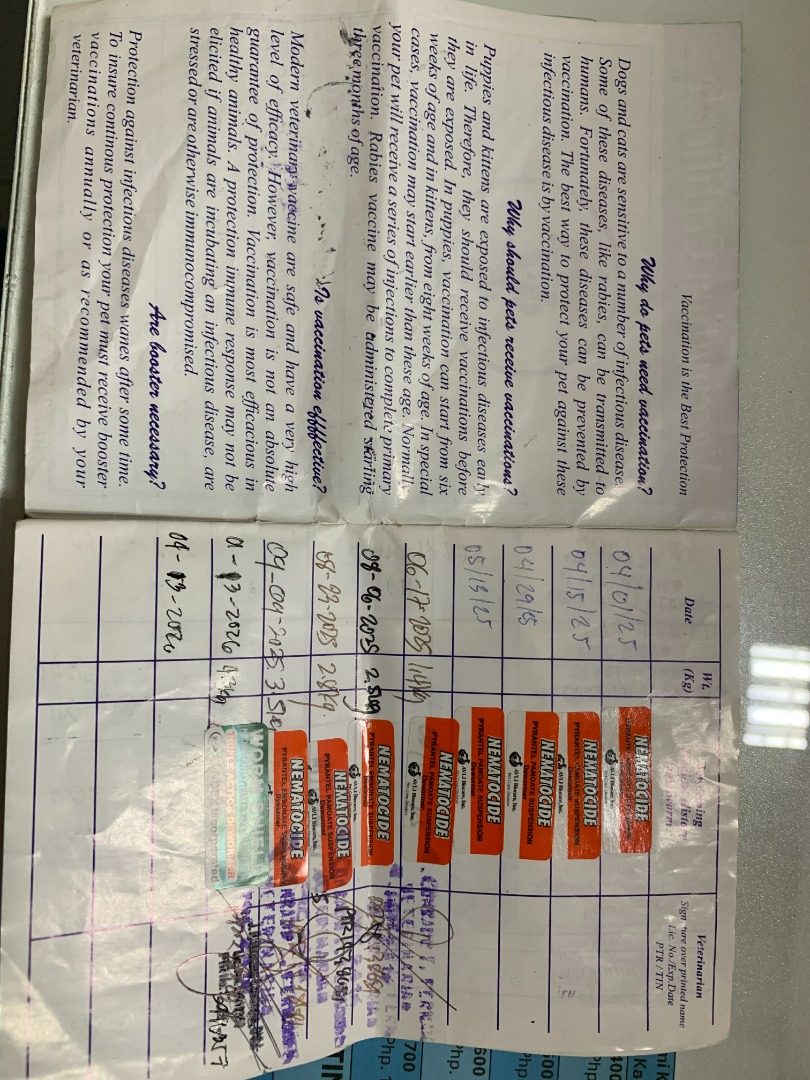 Vaccination is the Best Protection
Why do pets need vaccination?
Dogs and cats are sensitive to a number of infectious disease.
Some of these diseases, like rabies, can be transmitted to
humans. Fortunately, these diseases can be prevented by
vaccination. The best way to protect your pet against these
infectious disease is by vaccination.
Why should pets receive vaccinations?
Puppies and kittens are exposed to infectious diseases early
in life. Therefore, they should receive vaccinations before
they are exposed. In puppies, vaccination can start from six
weeks of age and in kittens, from eight weeks of age. In special
cases, vaccination may start earlier than these age. Normally
your pet will receive a series of injections to complete primary
vaccination. Rabies vaccine may be administered starting
three months of age.
Is vaccination effffective?
Modern veterinary vaccine are safe and have a very high
level of efficacy. However, vaccination is not an absolute
guarantee of protection. Vaccination is most efficacions in
healthy animals. A protection immune response may not be
elicited if animals are incubating an infectious disease, are
stressed or are otherwise immunocompromised.
Are booster necessary?
Protection against infectious diseases wanes after some time.
To insure continous protection your pet must receive booster
vaccinations annually or as recommended by your
veterinarian.
Date Wt. (Kg) Veterinarian
Signature over printed name
Lic. No./Exp.Date
PTR / TIN
04/01/25 NEMATOCIDE
04/15/25 NEMATOCIDE
PYRANTEL PAMOATE SUSPENSION
04/29/25 NEMATOCIDE
PYRANTEL PAMOATE SUSPENSION
05/13/25 NEMATOCIDE
PYRANTEL PAMOATE SUSPENSION
06-17-2025 NEMATOCIDE
PYRANTEL PAMOATE SUSPENSION
08-06-2025 2.5kg NEMATOCIDE
08-23-2025 2.8kg NEMATOCIDE
PYRANTEL PAMOATE SUSPENSION
09-09-2025 NEMATOCIDE
01-13-2026
04-13-2026
Php.
700